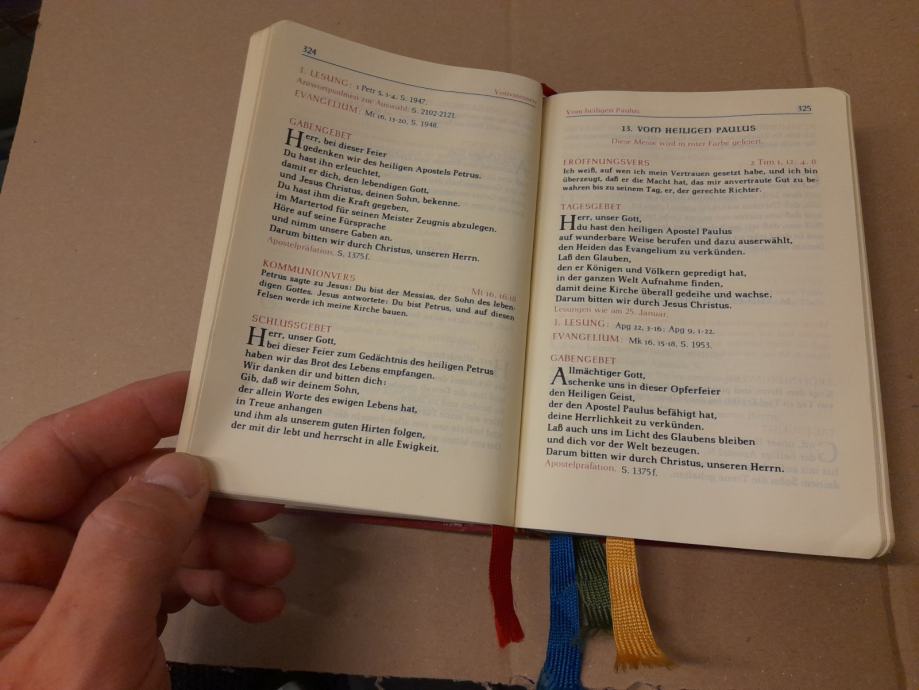 324
Votivmessen
1. LESUNG: 1 Petr 5, 1-4, S. 1947.
Antwortpsalmen zur Auswahl: S. 2102-2121.
EVANGELIUM: Mt 16, 13-20, S. 1948.
GABENGEBET
Herr, bei dieser Feier
gedenken wir des heiligen Apostels Petrus.
Du hast ihn erleuchtet,
damit er dich, den lebendigen Gott,
und Jesus Christus, deinen Sohn, bekenne.
Du hast ihm die Kraft gegeben,
im Martertod für seinen Meister Zeugnis abzulegen.
Höre auf seine Fürsprache
und nimm unsere Gaben an.
Darum bitten wir durch Christus, unseren Herrn.
Apostelpräfation, S. 1375 f.
KOMMUNIONVERS Mt 16, 16.18
Petrus sagte zu Jesus: Du bist der Messias, der Sohn des leben-
digen Gottes. Jesus antwortete: Du bist Petrus, und auf diesen
Felsen werde ich meine Kirche bauen.
SCHLUSSGEBET
Herr, unser Gott,
bei dieser Feier zum Gedächtnis des heiligen Petrus
haben wir das Brot des Lebens empfangen.
Wir danken dir und bitten dich:
Gib, daß wir deinem Sohn,
der allein Worte des ewigen Lebens hat,
in Treue anhangen
und ihm als unserem guten Hirten folgen,
der mit dir lebt und herrscht in alle Ewigkeit.
Vom heiligen Paulus 325
13. VOM HEILIGEN PAULUS
Diese Messe wird in roter Farbe gefeiert.
ERÖFFNUNGSVERS 2 Tim 1, 12; 4, 8
Ich weiß, auf wen ich mein Vertrauen gesetzt habe, und ich bin
überzeugt, daß er die Macht hat, das mir anvertraute Gut zu be-
wahren bis zu seinem Tag, er, der gerechte Richter.
TAGESGEBET
Herr, unser Gott,
du hast den heiligen Apostel Paulus
auf wunderbare Weise berufen und dazu auserwählt,
den Heiden das Evangelium zu verkünden.
Laß den Glauben,
den er Königen und Völkern gepredigt hat,
in der ganzen Welt Aufnahme finden,
damit deine Kirche überall gedeihe und wachse.
Darum bitten wir durch Jesus Christus.
Lesungen wie am 25. Januar.
1. LESUNG: Apg 22, 3-16; Apg 9, 1-22.
EVANGELIUM: Mk 16, 15-18, S. 1953.
GABENGEBET
Allmächtiger Gott,
schenke uns in dieser Opferfeier
den Heiligen Geist,
der den Apostel Paulus befähigt hat,
deine Herrlichkeit zu verkünden.
Laß auch uns im Licht des Glaubens bleiben
und dich vor der Welt bezeugen.
Darum bitten wir durch Christus, unseren Herrn.
Apostelpräfation, S. 1375 f.